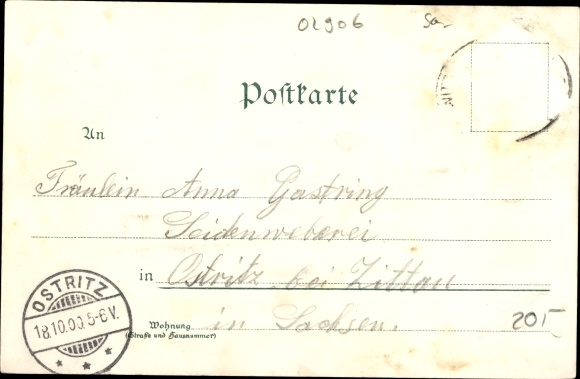 02906
Postkarte
An
Fräulein Anna Gastring
Seidenweberei
in Ostritz bei Zittau
Wohnung in Sachsen.
(Straße und Hausnummer)
20,-
OSTRITZ
18.10.00.5-6V.